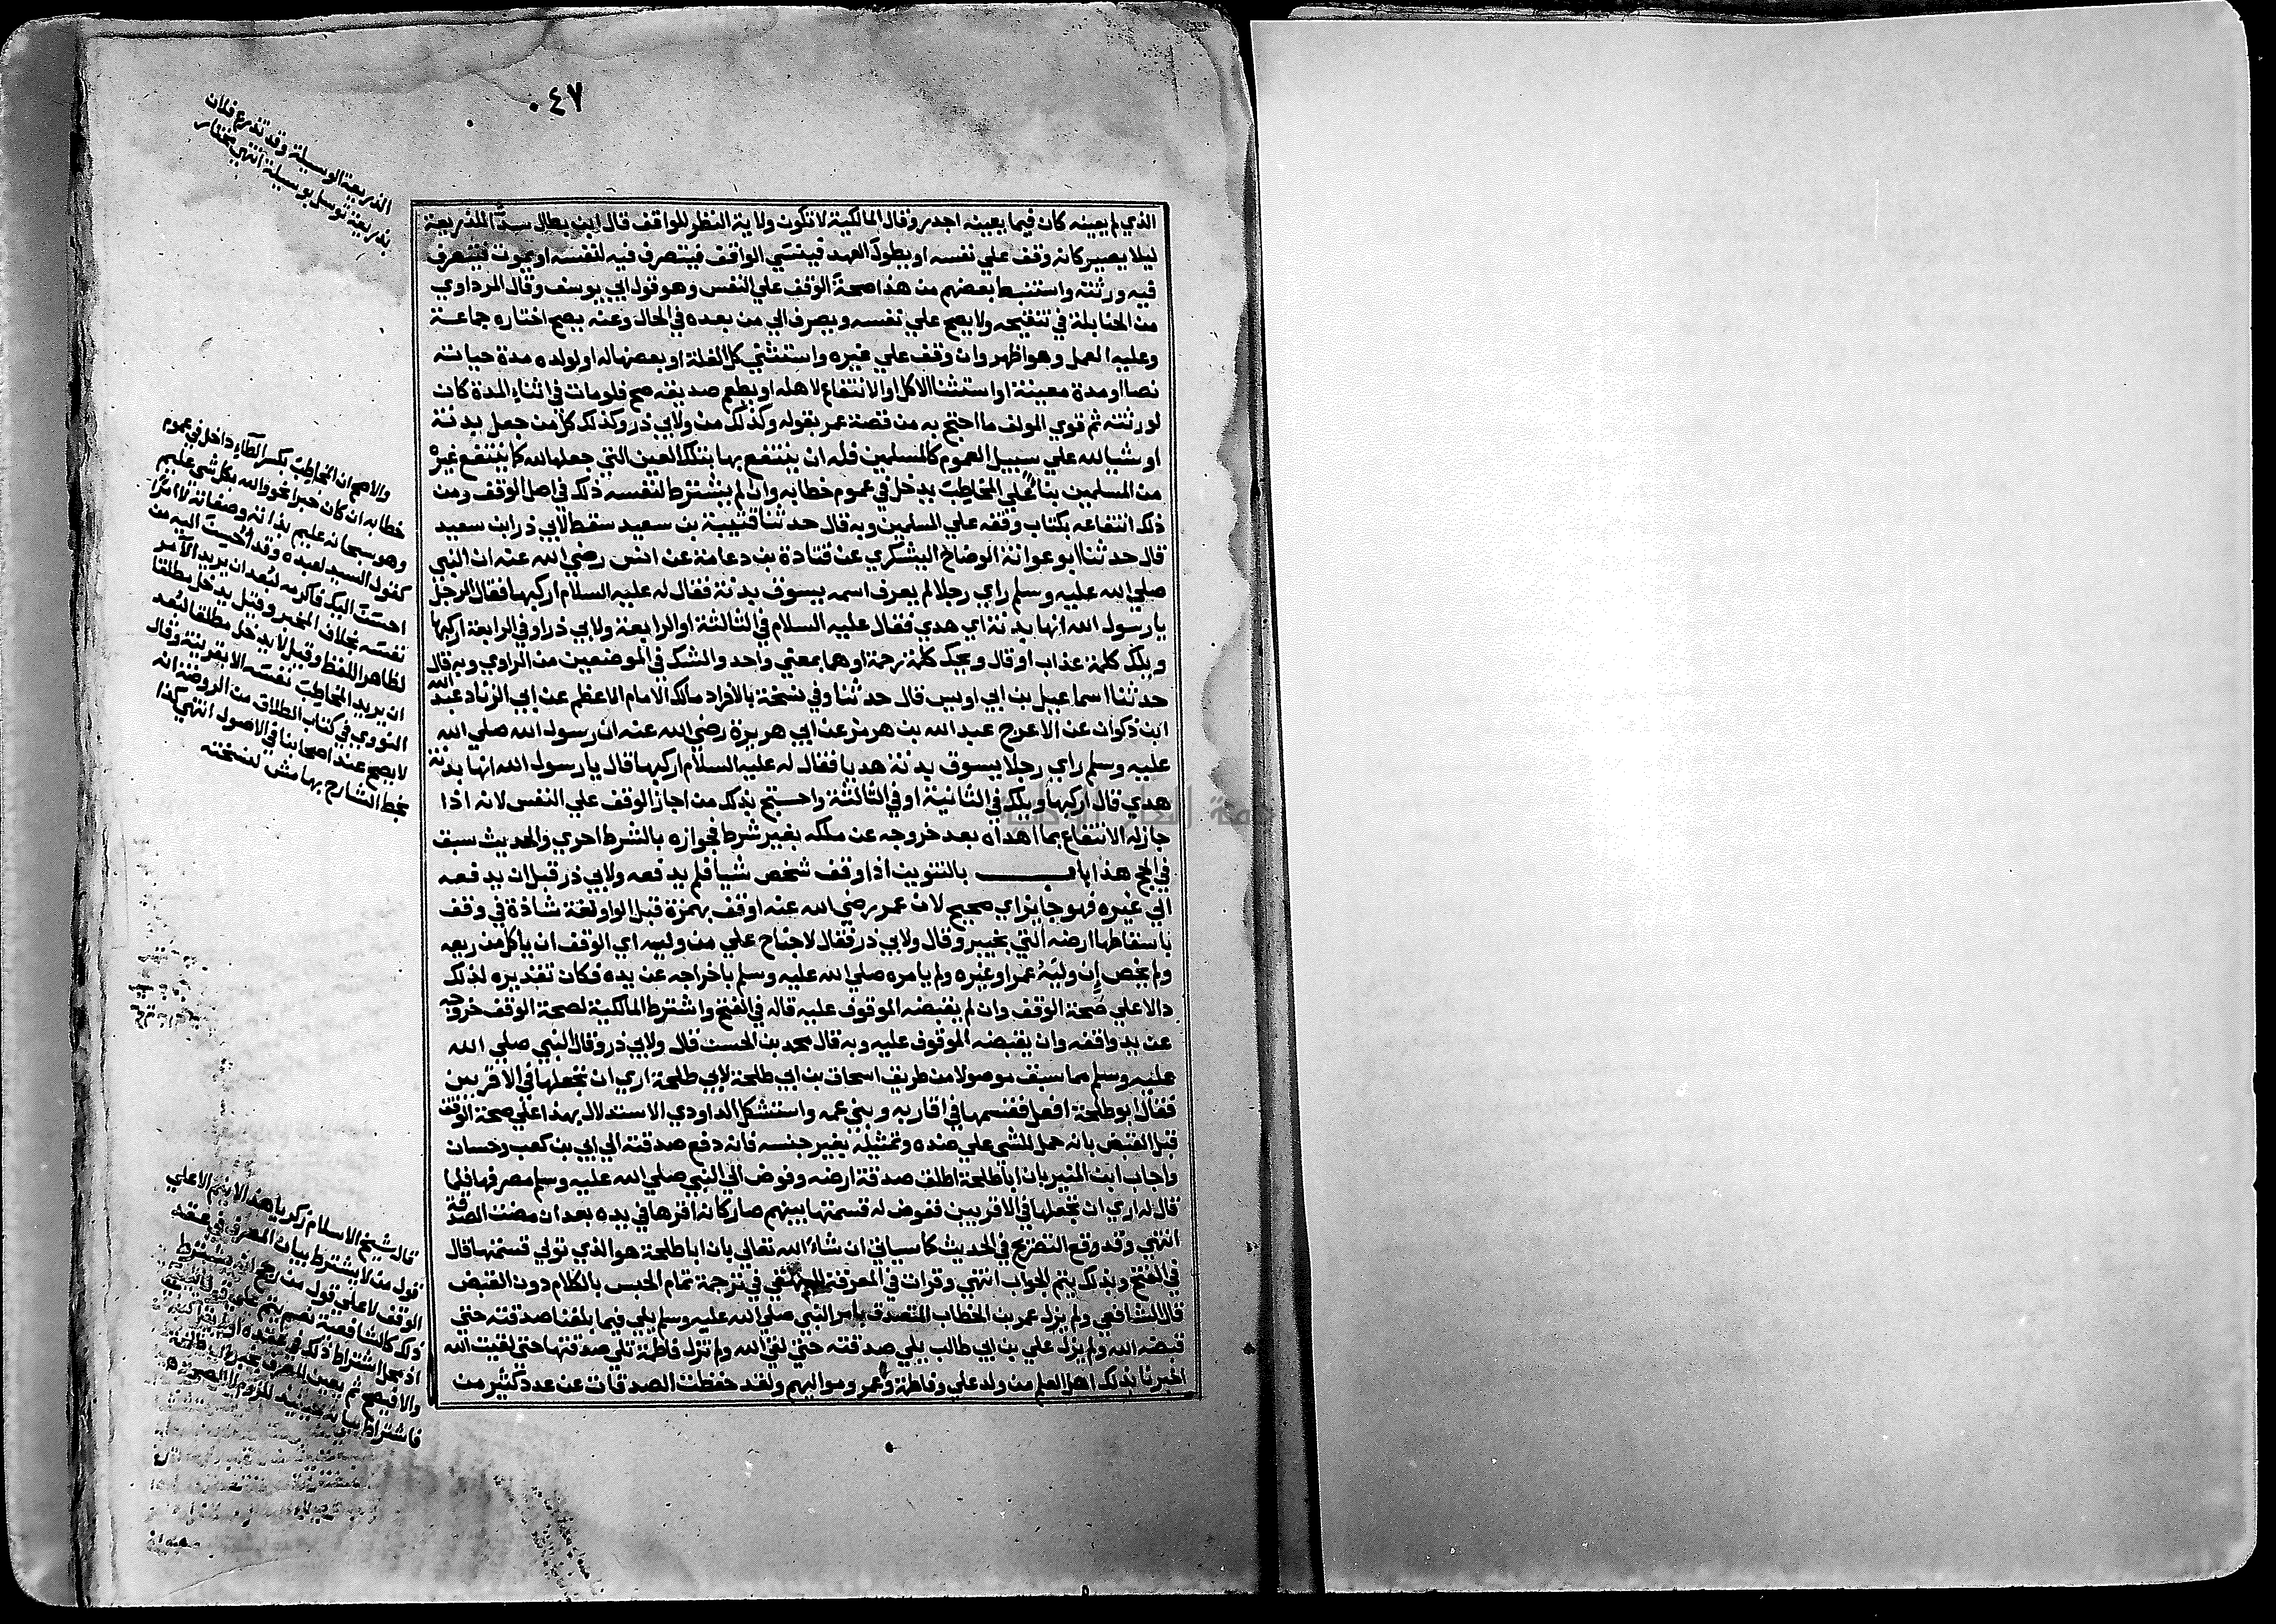 ٠٤٧
الذريعة الوسيلة وقد تذرع فلان
بذريعة توسل بوسيلة انتهي مختار
الذي لم يعينه كان فيما يعينه اجدر وقال المالكية لا تكون ولاية النظر للواقف قال ابن بطال سدا للذريعة
ليلا يصير كانه وقف علي نفسه او يطول العهد فينسي الواقف فيتصرف فيه لنفسه او يموت فيتصرف
فيه ورثته واستنبط بعضهم من هذا صحة الوقف علي النفس وهو قول ابي يوسف وقال المرداوي
من الحنابلة في تنقيحه ولا يصح علي نفسه ويصرف الي من بعده في الحال وعنه يصح اختاره جماعة
وعليه العمل وهو اظهر وان وقف علي غيره واستثني كل الغلة او بعضها له او لولده مدة حياته
نصا او مدة معينة او استثنا الاكل او الانتفاع لاهله او يطعم صديقه صح فلو مات في اثناء المدة كان
لورثته ثم قوي المولف ما احتج به من قصة عمر بقوله وكذلك من ولابي ذر وكذلك كل من جعل بدنة
او شيا لله علي سبيل العموم كالمسلمين فله ان ينتفع بها بتلك العين التي جعلها لله كما ينتفع غيره
من المسلمين بناءً علي المخاطِب يدخل في عموم خطابه وان لم يشترط لنفسه ذلك في اصل الوقف ومن
ذلك انتفاعه بكتاب وقفه علي المسلمين وبه قال حدثنا قتيبة بن سعيد سقط لابي ذر ابن سعيد
قال حدثنا ابو عوانة الوضاح اليشكري عن قتادة بن دعامة عن انس رضي الله عنه ان النبي
صلي الله عليه وسلم راي رجلا لم يعرف اسمه يسوق بدنة فقال له عليه السلام اركبها فقال الرجل
يا رسول الله انها بدنة اي هدي فقال عليه السلام في الثالثة او الرابعة ولابي ذر او في الرابعة اركبها
ويلك كلمة عذاب او قال ويحك كلمة رحمة او هما بمعني واحد والشك في الموضعين من الراوي وبه قال
حدثنا اسماعيل بن ابي اويس قال حدثنا وفي نسخة بالافراد مالك الامام الاعظم عن ابي الزناد عبد الله
ابن ذكوان عن الاعرج عبد الله بن هرمز عن ابي هريرة رضي الله عنه ان رسول الله صلي الله
عليه وسلم راي رجلا يسوق بدنة هديا فقال له عليه السلام اركبها قال يا رسول الله انها بدنة
هدي قال اركبها ويلك في الثانية او في الثالثة واحتج بذلك من اجاز الوقف علي النفس لانه اذا
جاز له الانتفاع بما اهداه بعد خروجه عن ملكه بغير شرط فجوازه بالشرط احري والحديث سبق
في الحج هذا باب بالتنوين اذا وقف شخص شيا فلم يدفعه ولابي ذر قبل ان يدفعه
الي غيره فهو جايز اي صحيح لان عمر رضي الله عنه اوقف بهمزة قبل الواو لغة شاذة في وقف
باسقاطها ارضه التي بخيبر وقال ولابي ذر فقال لا جناح علي من وليه اي الوقف ان ياكل من ريعه
ولم يخص إن وليَهُ عمر او غيره ولم يامره صلي الله عليه وسلم باخراجه عن يده فكان تقديره لذلك
دالا علي صحة الوقف وان لم يقبضه الموقوف عليه قاله في الفتح واشترط المالكية لصحة الوقف خروجه
عن يد واقفه وان يقبضه الموقوف عليه وبه قال محمد بن الحسن قال ولابي ذر وقال النبي صلي الله
عليه وسلم مما سبق موصولا من طريق اسحاق بن ابي طلحة لابي طلحة اري ان تجعلها في الاقربين
فقال ابو طلحة افعل فقسمها في اقاربه وبني عمه واستشكل الداودي الاستدلال بهذا علي صحة الوقف
قبل القبض بانه حمل للشي علي ضده وتمثيله بغير جنسه فانه دفع صدقته الي ابي بن كعب وحسان
واجاب ابن المنير بان ابا طلحة اطلق صدقة ارضه وفوض الي النبي صلي الله عليه وسلم مصرفها فلما
قال له اري ان تجعلها في الاقربين ففوض له قسمتها بينهم صار كانه اقرها في يده بعد ان مضت الصدقة
انتهي وقد وقع التصريح في الحديث كما سياتي ان شاء الله تعالي بان ابا طلحة هو الذي تولي قسمتها قال
في الفتح وبذلك يتم الجواب انتهي وقرات في المعرفة للبيهقي في ترجمة تمام الحبس بالكلام دون القبض
قال الشافعي ولم يزل عمر بن الخطاب المتصدق بامر النبي صلي الله عليه وسلم يلي فيما بلغنا صدقته حتي
قبضه الله ولم يزل علي بن ابي طالب يلي صدقته حتي لقي الله ولم تزل فاطمة تلي صدقتها حتي لقيت الله
اخبرنا بذلك اهل العلم من ولد علي وفاطمة وعمر ومواليهم ولقد حفظت الصدقات عن عدد كثير من
والاصح ان المخاطِب بكسر الطاء داخل في عموم
خطابه ان كان خبرا نحو والله بكل شي عليم
وهو سبحانه عليم بذاته وصفاته لا امرًا
كقول السيد لعبده وقد احسن اليه من
احسن اليك فاكرمه لبعد ان يريد الآمر
نفسَه بخلاف المخبر وقيل يدخل مطلقا
لظاهر اللفظ وقيل لا يدخل مطلقا لبعد
ان يريد المخاطِب نفسَه الا بقرينة وقال
النووي في كتاب الطلاق من الروضة انه
لا يصح عند اصحابنا في الاصول انتهي كذا
بخط الشارح بهامش لنسخته
قال شيخ الاسلام زكريا هذا لا يتم الا علي
قول من لا يشترط بيان المصرف في عقد
الوقف لا علي قول من
ذلك كالشافعية نعم يتم علي
والا فيصح ثم يعين المصرف